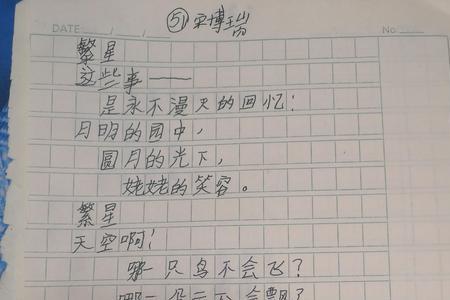 DATE / /
No
⑤1 宋博瑞
繁星
这些事——
是永不漫灭的回忆:
月明的园中,
圆月的光下,
姥姥的笑容。
繁星
天空啊!
哪一只鸟不会飞?
哪一朵云不会飘?